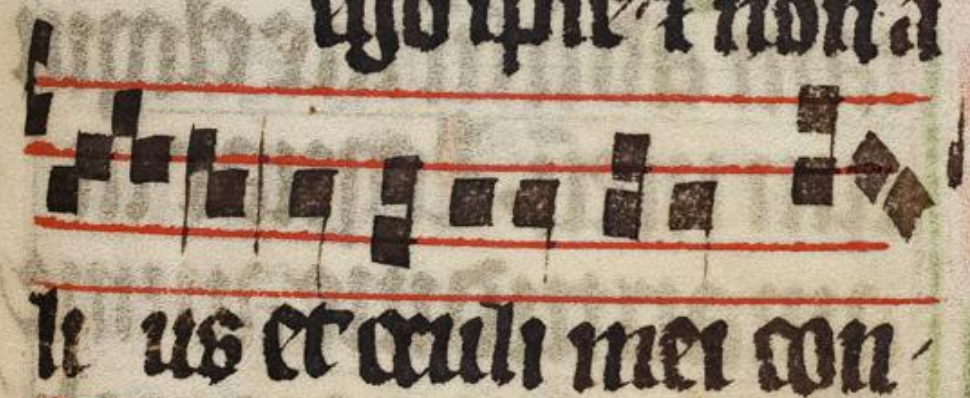 ego ipse ⁊ non a
li us et oculi mei con